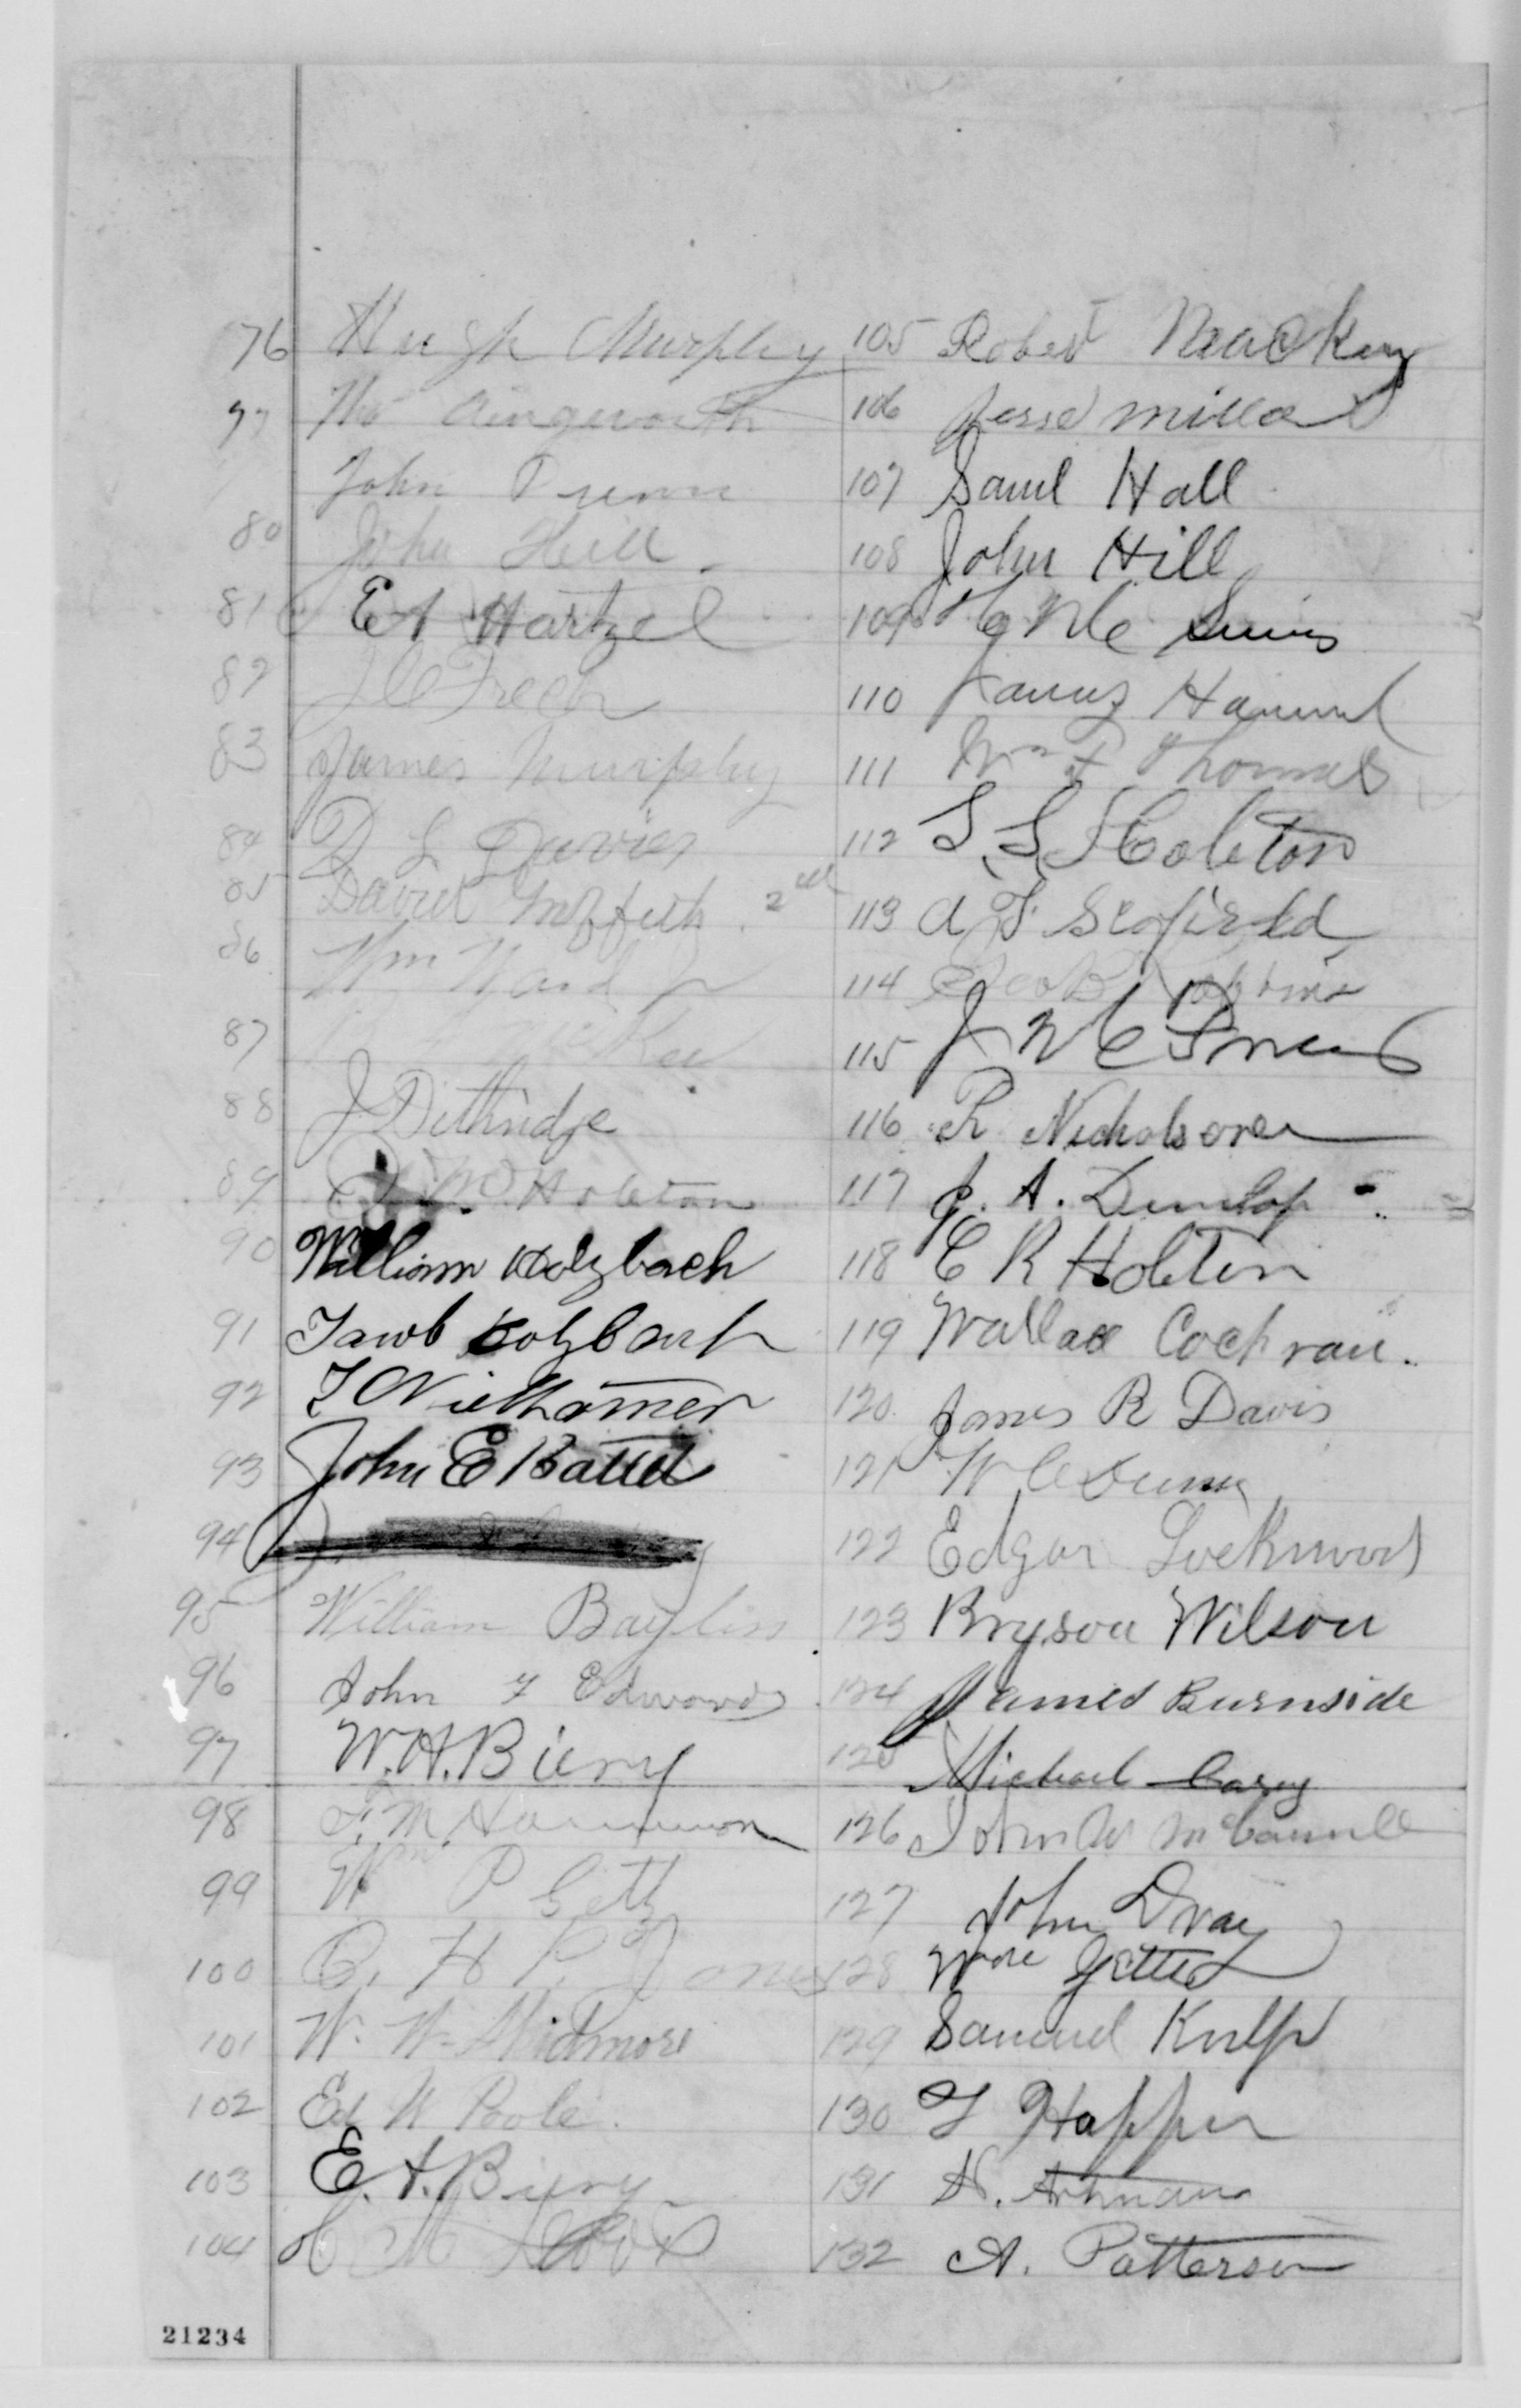 76 Hugh Murphy
77 Tho Aingworth
John Dunn
80 John Hill
81 E A Hartzel
82 J C Frech
83 James Murphy
84 D L Davies
85 David Moffitt 2nd
86 Wm Ward Jr
87
88 J Dithridge
89 Holeton
90 William Holzbach
91 Jacob Holzbach
92 J Niethamer
93 John E Battel
94
95 William Bayliss
96 John F Edwards
97 W. H. Biery
98 F. M. Hammon
99 Wm P Getz
100 C. H. P. Jones
101 W. W. Skidmore
102 Ed W Pole
103 E. A. Biery
104 C M
105 Robert Mackey
106 Jesse Millar
107 Saml Hall
108 John Hill
109 Mc
110 James Hammel
111 Wm P Thomas
112 S. S. Holeton
113 A F Scofield
114
115 J Mc
116 R Nicholson
117 J. A. Dunlop
118 C R Holeton
119 Wallace Cochran.
120 James R Davis
121 W C Dunn
122 Edgar Lockwood
123 Bryson Wilson
124 James Burnside
125 Michael Casey
126 John W McConnell
127 John Dray
128 Wm
129 Samuel Kulp
130 Hopper
131 H. Artman
132 A. Patterson
21234